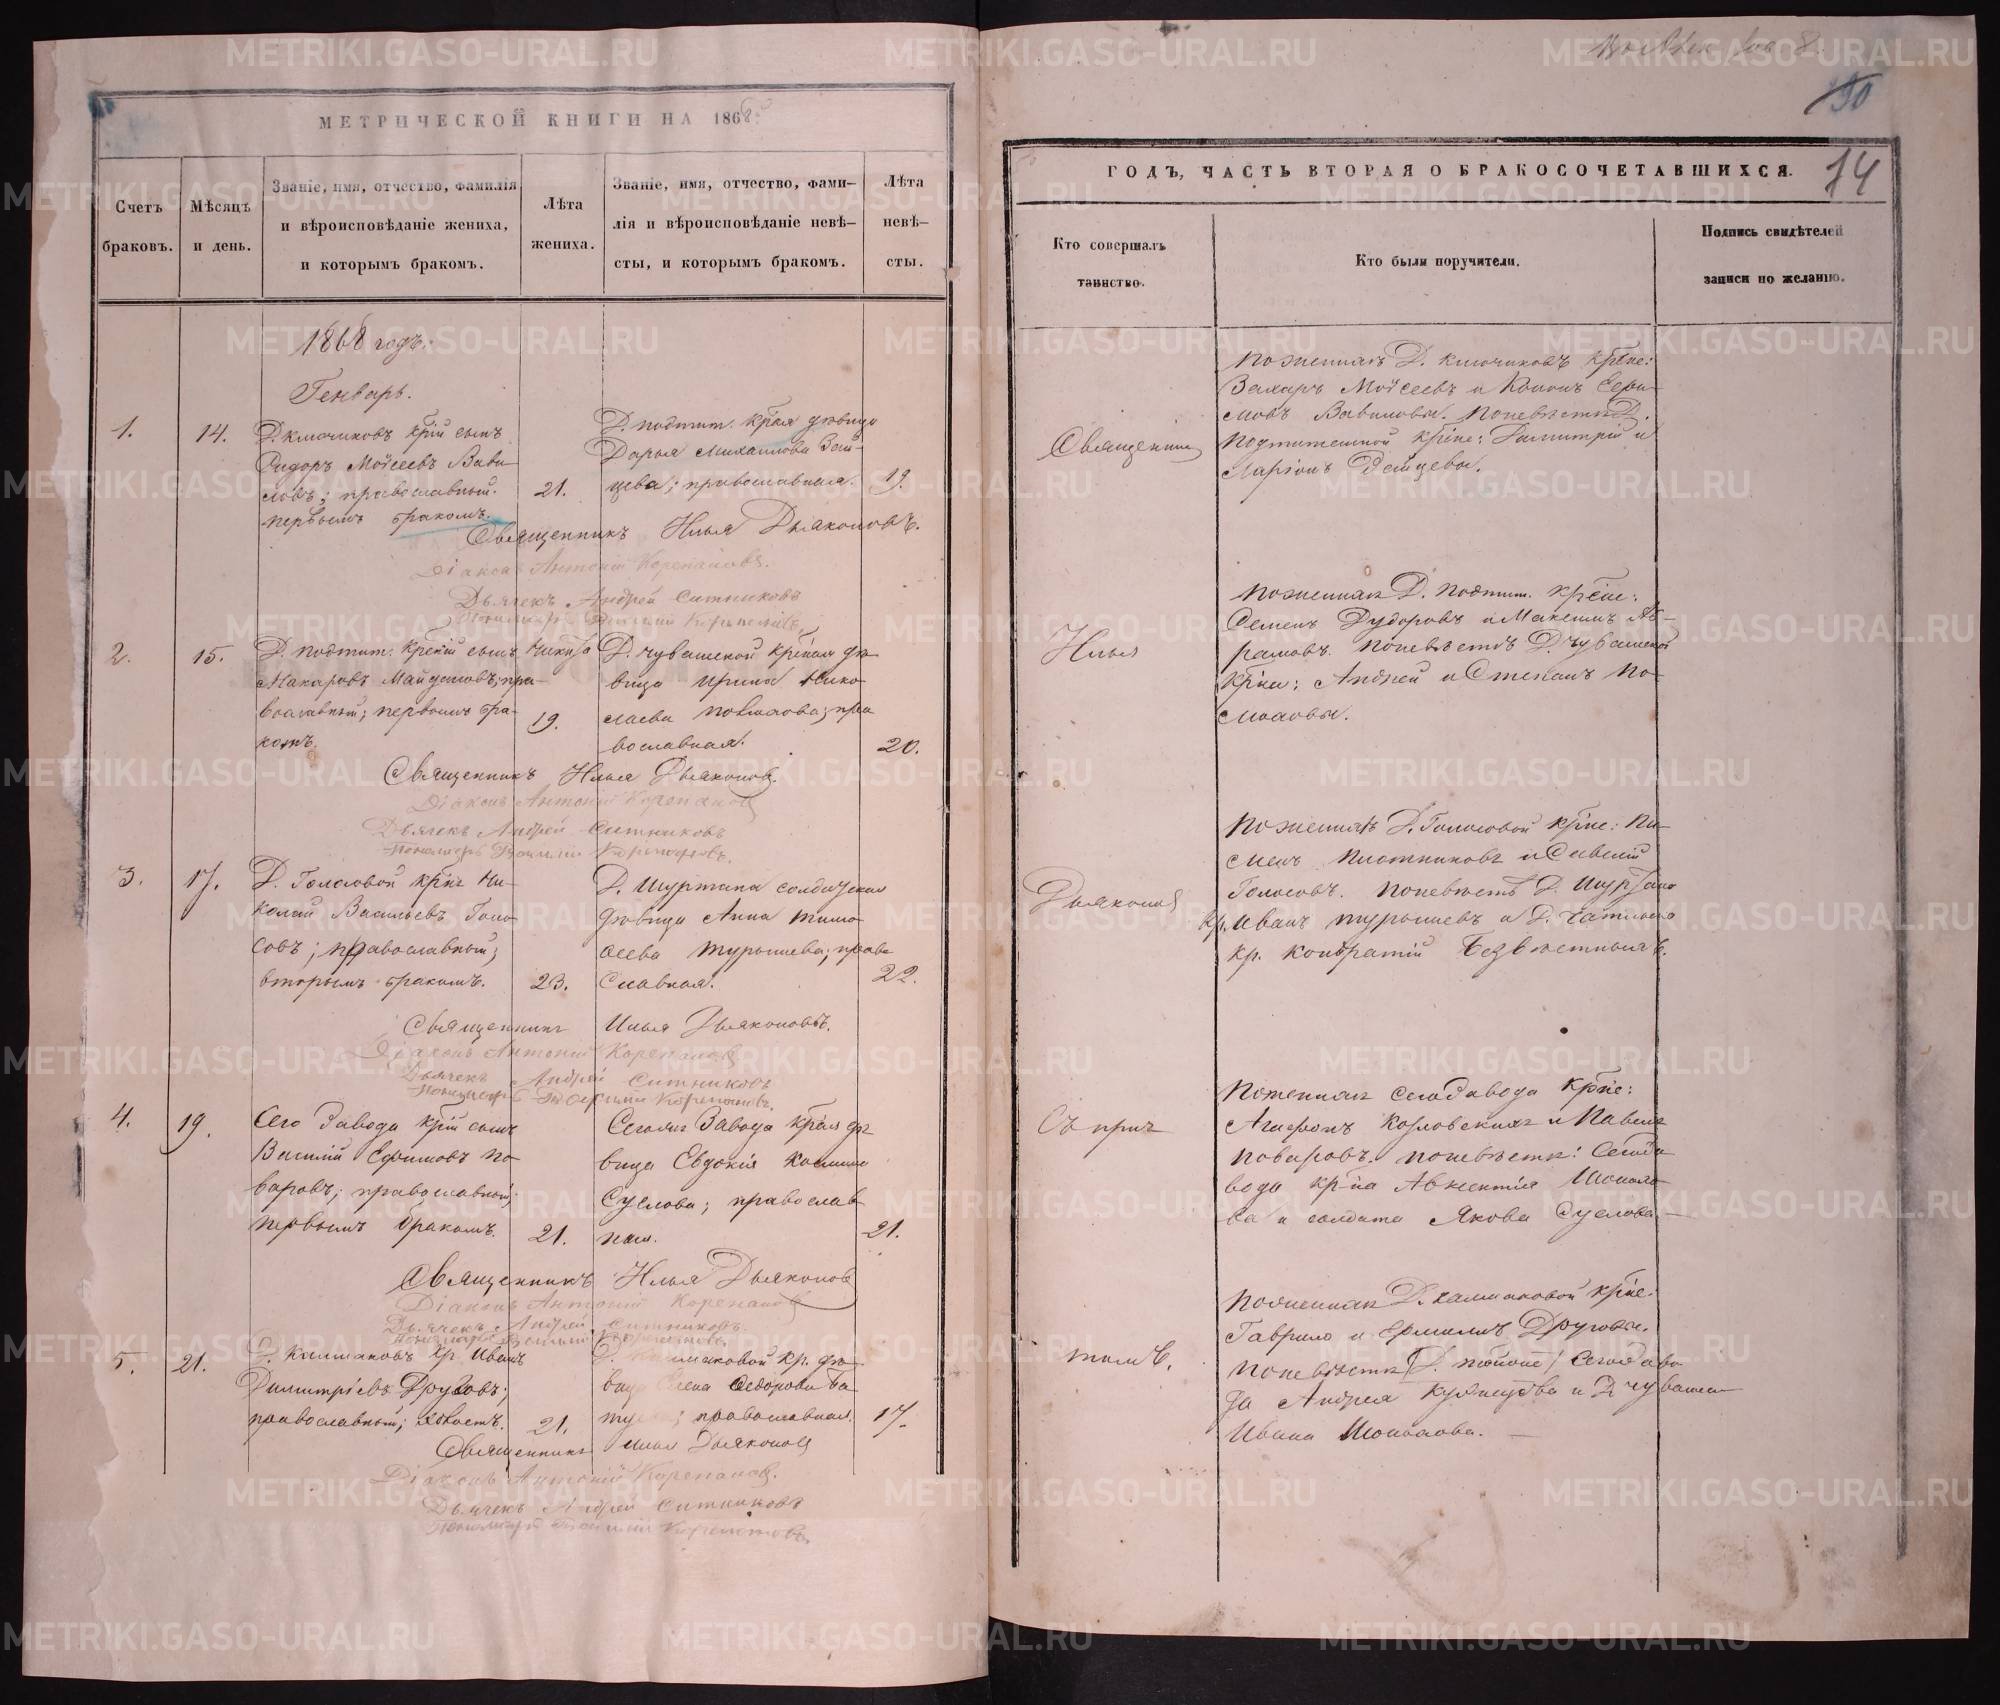 МЕТРИЧЕСКОЙ КНИГИ НА 1868
Счетъ браковъ.
Мѣсяцъ и день.
Званіе, имя, отчество, фамилія и вѣроисповѣданіе жениха, и которымъ бракомъ.
Лѣта жениха.
Званіе, имя, отчество, фами–
лія и вѣроисповѣданіе невѣ–
сты, и которымъ бракомъ.
Лѣта невѣ–
сты.
1868 годъ.
Генварь.
1.
14.
Д. Ключиковъ кр̃ій сынъ
Сидоръ Моѵсеевъ Вави–
ловъ; православный.
первымъ бракомъ.
21.
Д. Подтит. кр̃ая дѣвица
Дарья Михаилова Зай–
цева; православная.
19.
Священникъ Илья Дьяконовъ.
Діаконъ Антоній Корепановъ.
Дьячекъ Андрей Ситниковъ
2.
15.
Д. Подтит. кр̃ній сынъ Никита
Макаровъ Майдановъ; пра–
вославный; первымъ бра–
комъ.
19.
Д. Чувашской кр̃ная дѣ–
вица Ирина Нико–
лаева православная.
20.
Священникъ Илья Дьяконовъ.
Діаконъ Антоній Корепановъ
Дьячекъ Андрей Ситниковъ
3.
17.
Д. Голосовой кр̃нъ Ни–
колай Васильевъ Голо–
совъ; православный;
вторымъ бракомъ.
23.
Д. Шуртана солдатская
дѣвица Анна Тимо–
ѳеева Турышева; право
славная.
22.
Священникъ Илья Дьяконовъ.
Діаконъ Антоній Корепановъ
Дьячекъ Андрей Ситниковъ
4.
19.
Сего Завода кр̃ій сынъ
Василій Ефимовъ По–
варовъ; православный;
первымъ бракомъ.
21.
Сегоже Завода кр̃ая дѣ
вица Евдокія
Суслова; православ
ная.
21.
Священникъ Илья Дьяконовъ
Діаконъ Антоній Корепановъ
Дьячекъ Андрей Ситниковъ.
5.
21.
Д. Калмаковъ кр. Иванъ
Димитріевъ Друговъ;
православный; холостъ.
21.
Д. Калмаковой кр. дѣ–
вица Елена Ѳедорова
православная.
17.
Священникъ Илья Дьяконовъ
Діаконъ Антоній Корепановъ.
Дьячекъ Андрей Ситниковъ
90
ГОДЪ, ЧАСТЬ ВТОРАЯ О БРАКОСОЧЕТАВШИХСЯ.
74
Кто совершалъ таинство.
Кто были поручители.
Подпись свидѣтелей записи по желанію.
Священникъ
Илья
Дьяконовъ
съ прич
томъ.
По женихѣ Д. Ключиковъ кр̃не:
Захаръ Моѵсеевъ и Кононъ Ефи–
мовъ Вавиловы. По невѣстѣ Д.
Подтитешной кр̃не: Димитрій и
Ларіонъ Зайцевы.
По женихѣ Д. Подтит. кр̃не:
Семенъ Дудоровъ и Максимъ Аб–
рамовъ. По невѣстѣ Д. Чувашской
кр̃не: Андрей и Степанъ
По женихѣ Д. Голосовой кр̃не: Пи–
менъ Плотниковъ и Савелій
Голосовъ. По невѣстѣ Д. Шуртана
кр. Иванъ Турышевъ и Д.
кр. Кондратій Безвѣстныхъ.
По женихѣ Сего Завода кр̃не:
Агафонъ Козловскихъ и Павелъ
Поваровъ. По невѣстѣ: Сего За
вода кр–на Авксентія
и солдата Якова Суслова.
По женихѣ Д. Калмаковой кр̃не.
Гаврило и Ермилъ Друговы.
По невѣстѣ Сего Заво
да Андрея и Д Чуваш
Ивана
METRIKI.GASO-URAL.RU